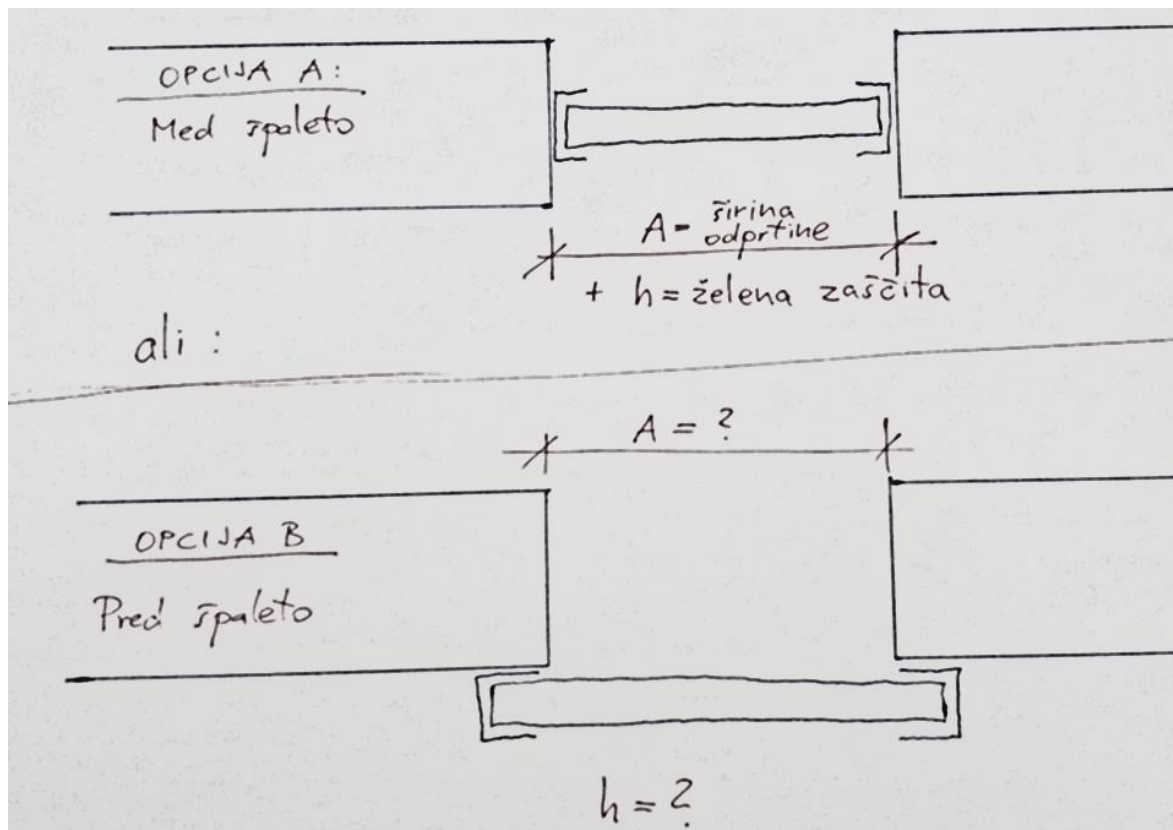 OPCIJA A:
Med špaleto
A = širina
odprtine
+ h = želena zaščita
ali :
A = ?
OPCIJA B
Pred špaleto
h = ?